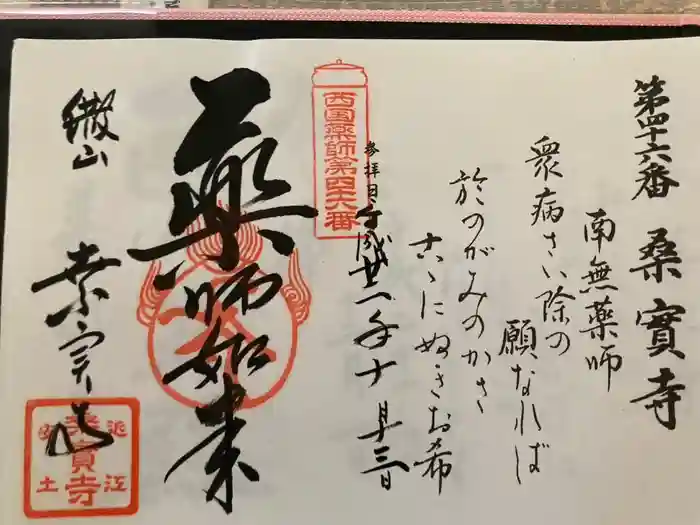 第四十六番 桑實寺
南無薬師
衆病さい除の
願なれば
於のがみのかさ
古ゝにぬぎお希
参拝日 平成廿一年十月十三日
西国薬師第四十六番
薬師如来
繖山
桑実寺
近江
桑實寺
安土